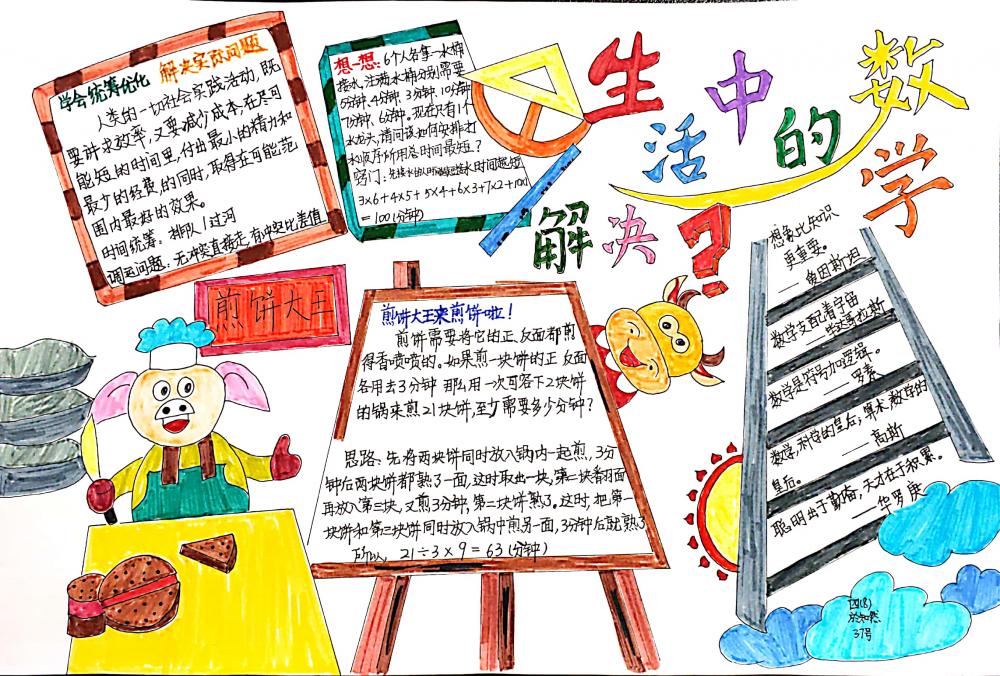 生活中的数学
解决?
学会统筹优化 解决实际问题
人类的一切社会实践活动,既
要讲求效率,又要减少成本,在尽可
能短的时间里,付出最小的精力和
最少的经费,的同时,取得在可能范
围内最好的效果。
时间统筹:排队 过河
调运问题:无冲突直接走,有冲突比差值
想一想:6个人各拿一水桶
接水,注满水桶分别需要
5分钟、4分钟、3分钟、10分钟
7分钟、6分钟,现在只有1个
水龙头,请问该如何安排打
水顺序所用总时间最短?
窍门:
3×6+4×5+5×4+6×3+7×2+10×1
=100(分钟)
煎饼大王
煎饼大王来煎饼啦!
煎饼需要将它的正、反面都煎
得香喷喷的。如果煎一块饼的正、反面
各用去3分钟 那么,用一次可容下2块饼
的锅来煎21块饼,至少需要多少分钟?
思路:先将两块饼同时放入锅内一起煎,3分
钟后两块饼都熟了一面,这时取出一块,第二块翻面
再放入第三块,又煎3分钟,第二块饼熟了。这时,把第一
块饼和第三块饼同时放入锅中煎另一面,3分钟后就熟了
所以,21÷3×9=63(分钟)
想象比知识
更重要。
——爱因斯坦
数学支配着宇宙
——毕达哥拉斯
数学是符号加逻辑。
——罗素
数学,科学的皇后;算术,数学的
皇后。 ——高斯
聪明出于勤奋,天才在于积累。
——华罗庚
四(8)
37号